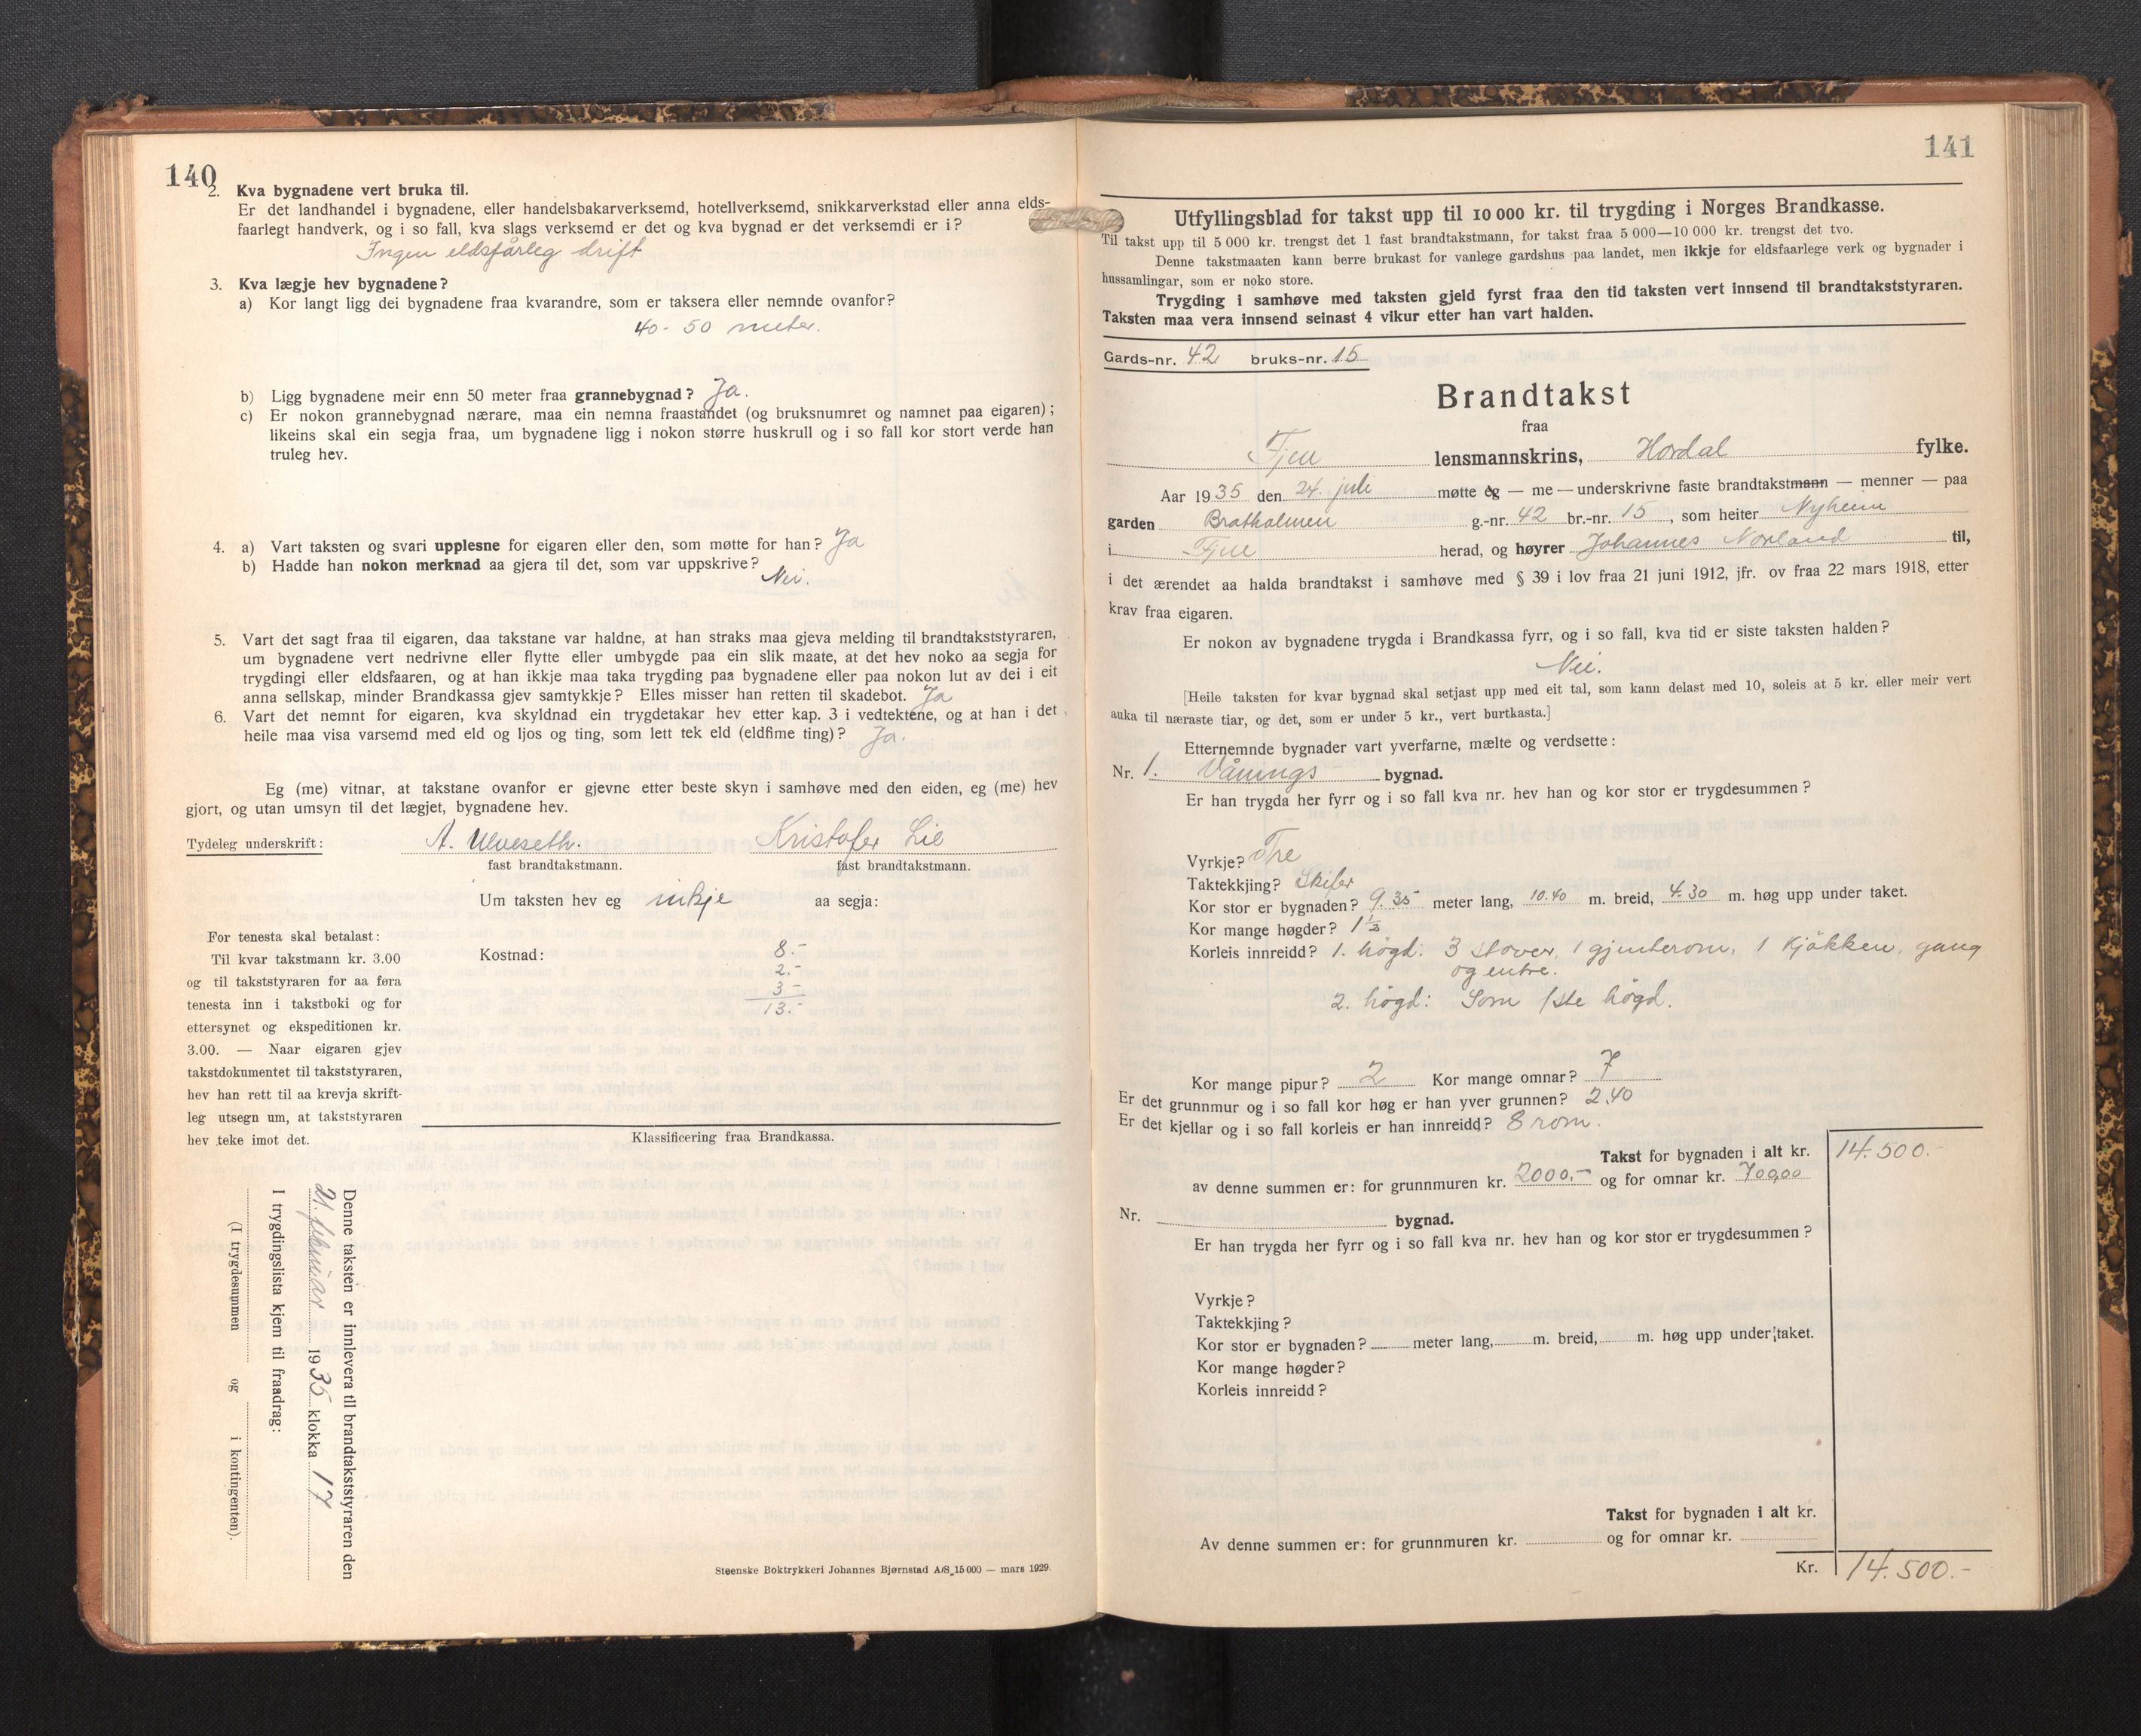 140
2. Kva bygnadene vert bruka til.
Er det landhandel i bygnadene, eller handelsbakarverksemd, hotellverksemd, snikkarverkstad eller anna elds-
faarlegt handverk, og i so fall, kva slags verksemd er det og kva bygnad er det verksemdi er i?
Ingen eldsfårleg drift
3. Kva lægje hev bygnadene?
a) Kor langt ligg dei bygnadene fraa kvarandre, som er taksera eller nemnde ovanfor?
40-50 meter.
b) Ligg bygnadene meir enn 50 meter fraa grannebygnad? Ja.
c) Er nokon grannebygnad nærare, maa ein nemna fraastandet (og bruksnumret og namnet paa eigaren);
likeins skal ein segja fraa, um bygnadene ligg i nokon større huskrull og i so fall kor stort verde han
truleg hev.
4. a) Vart taksten og svari upplesne for eigaren eller den, som møtte for han? Ja
b) Hadde han nokon merknad aa gjera til det, som var uppskrive? Nei.
5. Vart det sagt fraa til eigaren, daa takstane var haldne, at han straks maa gjeva melding til brandtakststyraren,
um bygnadene vert nedrivne eller flytte eller umbygde paa ein slik maate, at det hev noko aa segja for
trygdingi eller eldsfaaren, og at han ikkje maa taka trygding paa bygnadene eller paa nokon lut av dei i eit
anna sellskap, minder Brandkassa gjev samtykkje? Elles misser han retten til skadebot. Ja
6. Vart det nemnt for eigaren, kva skyldnad ein trygdetakar hev etter kap. 3 i vedtektene, og at han i det
heile maa visa varsemd med eld og ljos og ting, som lett tek eld (eldfime ting)? Ja.
Eg (me) vitnar, at takstane ovanfor er gjevne etter beste skyn i samhøve med den eiden, eg (me) hev
gjort, og utan umsyn til det lægjet, bygnadene hev.
Tydeleg underskrift: A. Ulveseth. Kristofer Lie
fast brandtakstmann. fast brandtakstmann.
Um taksten hev eg inkje aa segja:
For tenesta skal betalast:
Til kvar takstmann kr. 3.00
og til takststyraren for aa føra
tenesta inn i takstboki og for
ettersynet og ekspeditionen kr.
3.00. — Naar eigaren gjev
takstdokumentet til takststyraren,
hev han rett til aa krevja skrift-
leg utsegn um, at takststyraren
hev teke imot det.
Kostnad: 8.-
2.-
3-
13.-
Klassificering fraa Brandkassa.
Denne taksten er innlevera til brandtakststyraren den
21. februar 1935 klokka 17
I trygdingslista kjem til fraadrag:
(I trygdesummen og i kontingenten).
Steenske Boktrykkeri Johannes Bjørnstad A/S. 15 000 — mars 1929.
141
Utfyllingsblad for takst upp til 10 000 kr. til trygding i Norges Brandkasse.
Til takst upp til 5 000 kr. trengst det 1 fast brandtakstmann, for takst fraa 5 000—10 000 kr. trengst det tvo.
Denne takstmaaten kann berre brukast for vanlege gardshus paa landet, men ikkje for eldsfaarlege verk og bygnader i
hussamlingar, som er noko store.
Trygding i samhøve med taksten gjeld fyrst fraa den tid taksten vert innsend til brandtakststyraren.
Taksten maa vera innsend seinast 4 vikur etter han vart halden.
Gards-nr. 42 bruks-nr. 15
Brandtakst
fraa
Fjell lensmannskrins, Hordal fylke.
Aar 1935 den 24. juli møtte eg — me — underskrivne faste brandtakstmann — menner — paa
garden Bratholmen g.-nr. 42 br.-nr. 15, som heiter Nyheim
i Fjell herad, og høyrer Johannes Norland til,
i det ærendet aa halda brandtakst i samhøve med § 39 i lov fraa 21 juni 1912, jfr. ov fraa 22 mars 1918, etter
krav fraa eigaren.
Er nokon av bygnadene trygda i Brandkassa fyrr, og i so fall, kva tid er siste taksten halden?
Nei.
[Heile taksten for kvar bygnad skal setjast upp med eit tal, som kann delast med 10, soleis at 5 kr. eller meir vert
auka til næraste tiar, og det, som er under 5 kr., vert burtkasta.]
Etternemnde bygnader vart yverfarne, mælte og verdsette:
Nr. 1. Vånings bygnad.
Er han trygda her fyrr og i so fall kva nr. hev han og kor stor er trygdesummen?
Vyrkje? Tre
Taktekkjing? Skifer
Kor stor er bygnaden? 9.35 meter lang, 10.40 m. breid, 4.30 m. høg upp under taket.
Kor mange høgder? 1 1/2
Korleis innreidd? 1. högd: 3 stover, 1 gjenterom, 1 kjökken, gang
og entre.
2. högd: Som 1ste högd.
Kor mange pipur? 2 Kor mange omnar? 7
Er det grunnmur og i so fall kor høg er han yver grunnen? 2,40
Er det kjellar og i so fall korleis er han innreidd? 8 rom.
Takst for bygnaden i alt kr. 14.500.-
av denne summen er: for grunnmuren kr. 2000.- og for omnar kr. 700,00
Nr. bygnad.
Er han trygda her fyrr og i so fall kva nr. hev han og kor stor er trygdesummen?
Vyrkje?
Taktekkjing?
Kor stor er bygnaden? meter lang, m. breid, m. høg upp under taket.
Kor mange høgder?
Korleis innreidd?
Takst for bygnaden i alt kr.
Av denne summen er: for grunnmuren kr. og for omnar kr.
Kr. 14.500.-